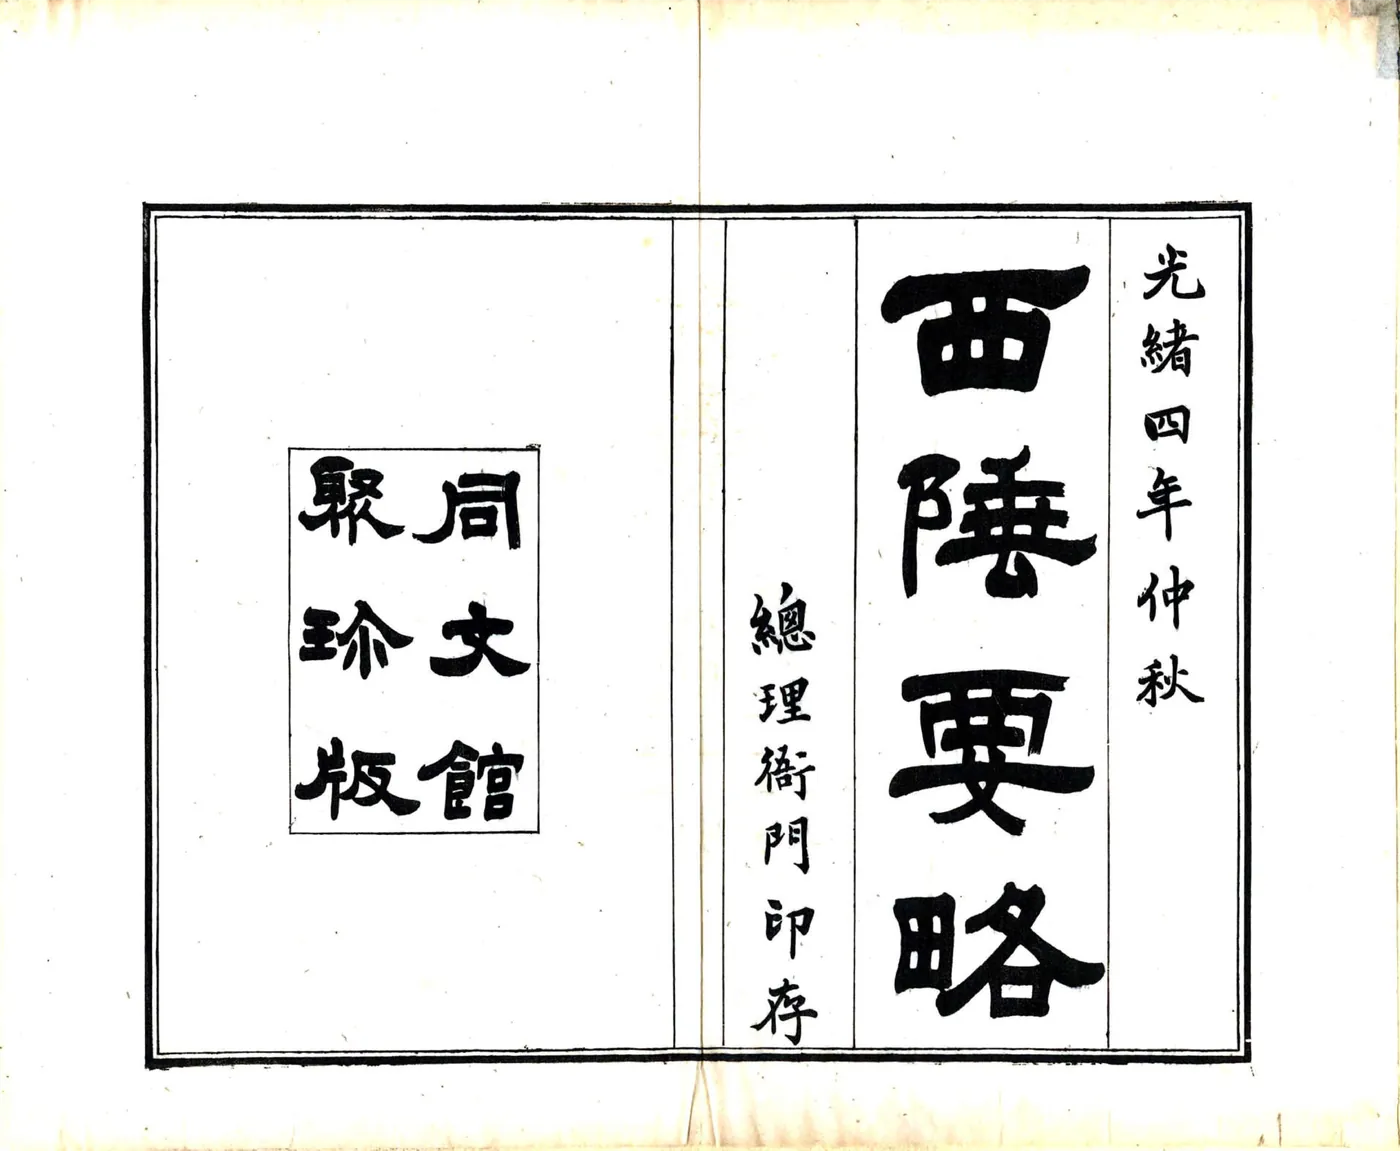 光緒四年仲秋
西陲要略
總理衙門印存
同文館
聚珍版